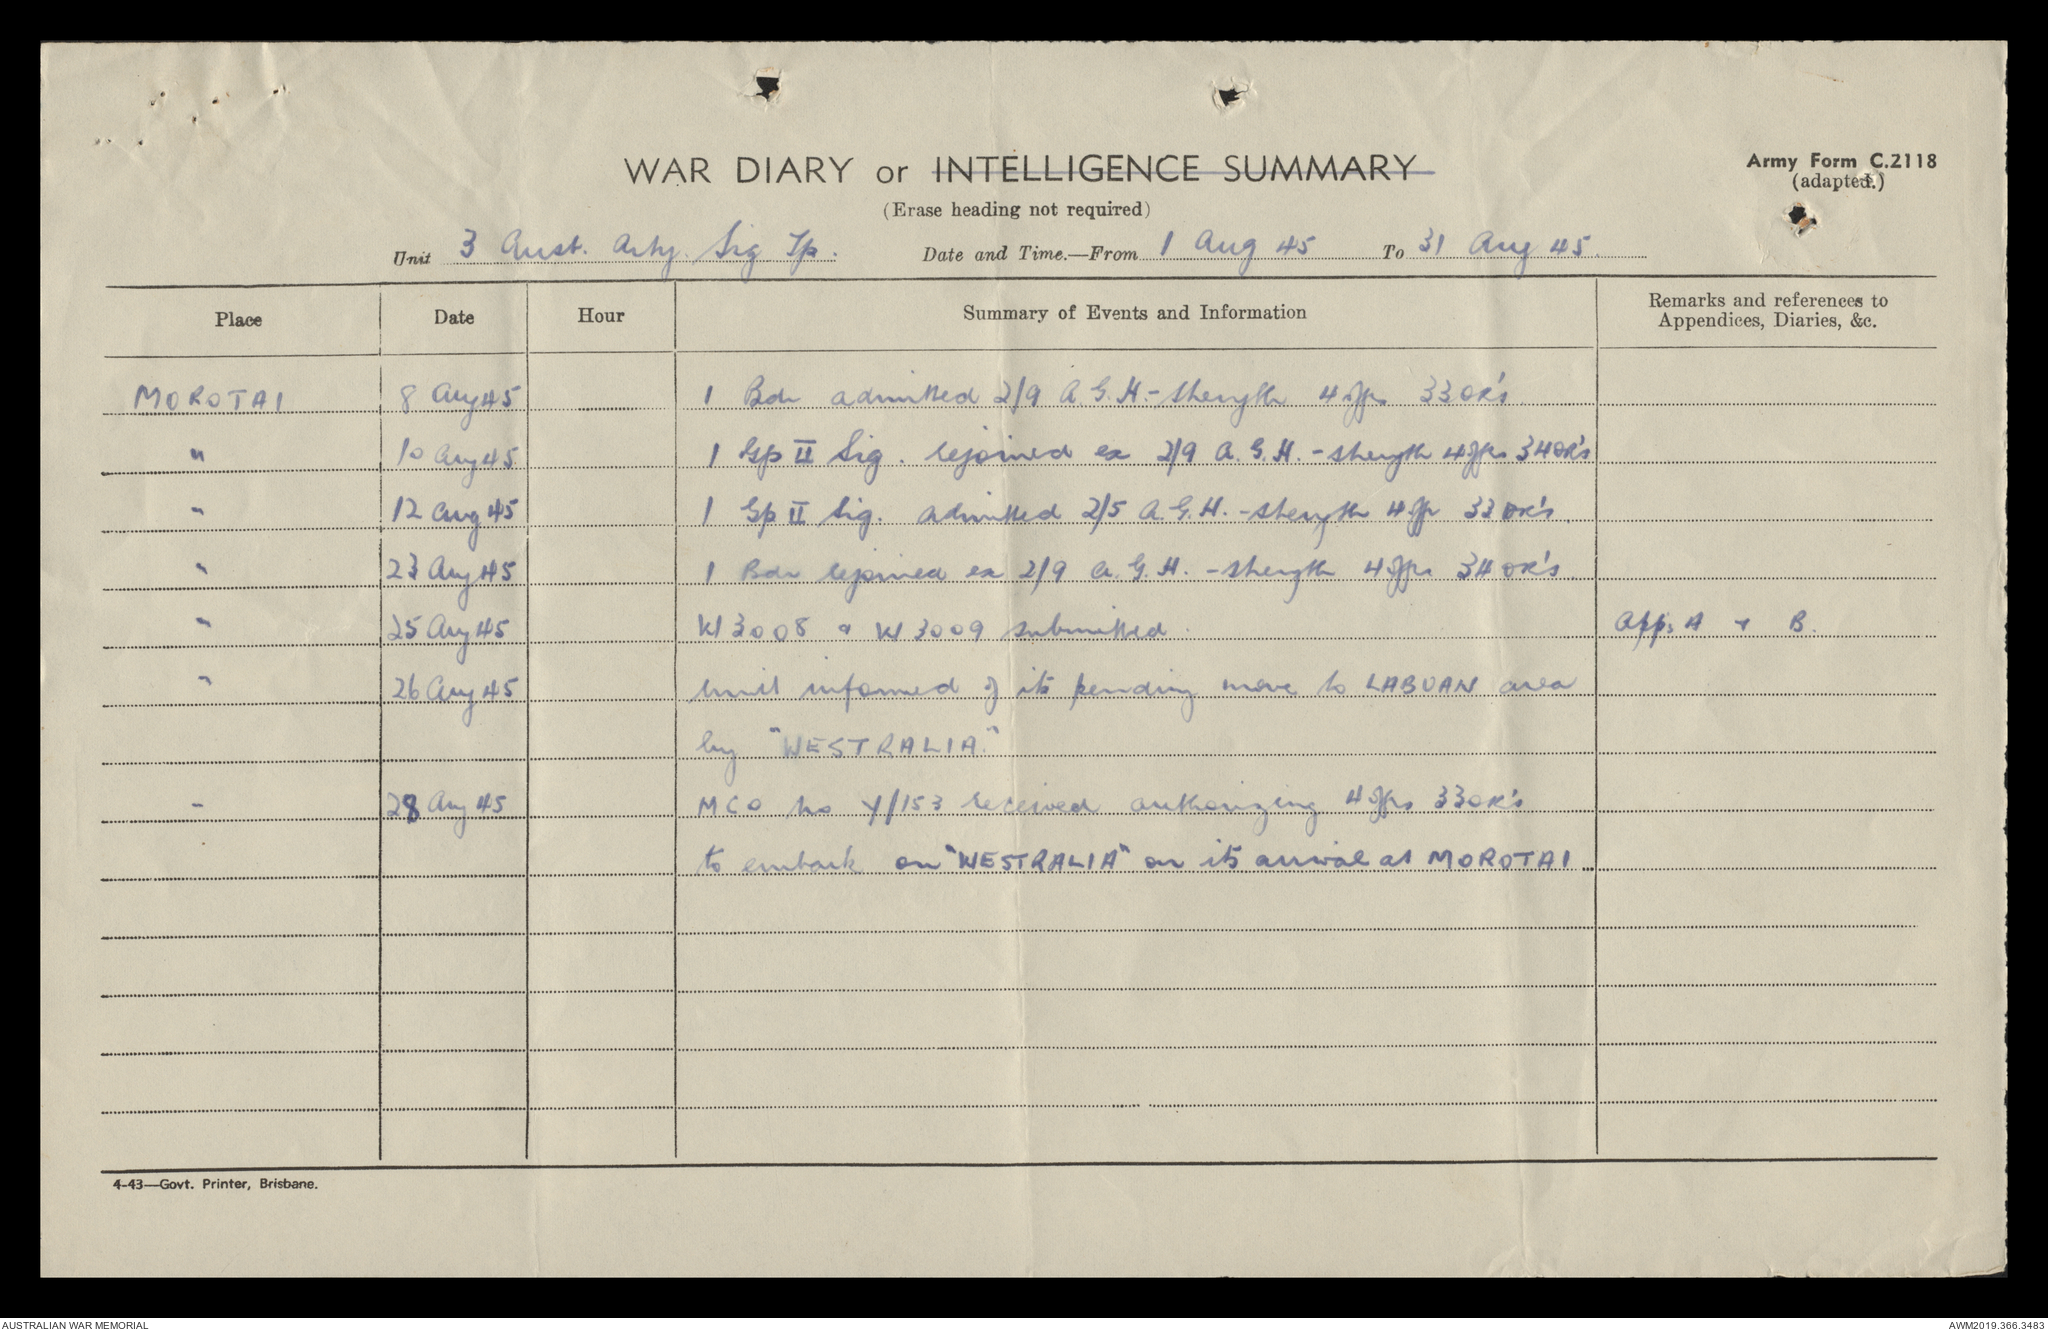 WAR DIARY or INTELLIGENCE SUMMARY
Army Form C.2118
(adapted.)
(Erase heading not required)
Unit 3 Aust. Arty. Sig Tp. Date and Time.—From 1 Aug 45 To 31 Aug 45.
Place Date Hour Summary of Events and Information Remarks and references to
Appendices, Diaries, &c.
MOROTAI 8 Aug 45 1 Bdr admitted 2/9 A.G.H.- strength 4 offrs 33 OR's
" 10 Aug 45 1 Gp II Sig. rejoined ex 2/9 A.G.H. - strength 4 offrs 34 OR's
" 12 Aug 45 1 Gp II Sig. admitted 2/5 A.G.H. - strength 4 offr 33 OR's.
" 23 Aug 45 1 Bdr rejoined ex 2/9 A.G.H. - strength 4 offrs 34 OR's.
" 25 Aug 45 W3008 & W3009 submitted. Apps A + B.
" 26 Aug 45 Unit informed of its pending move to LABUAN area
by "WESTRALIA."
" 28 Aug 45 MCO no Y/153 received authorizing 4 offrs 33 OR's
to embark on "WESTRALIA" on its arrival at MOROTAI
4-43—Govt. Printer, Brisbane.
AUSTRALIAN WAR MEMORIAL
AWM2019.366.3483